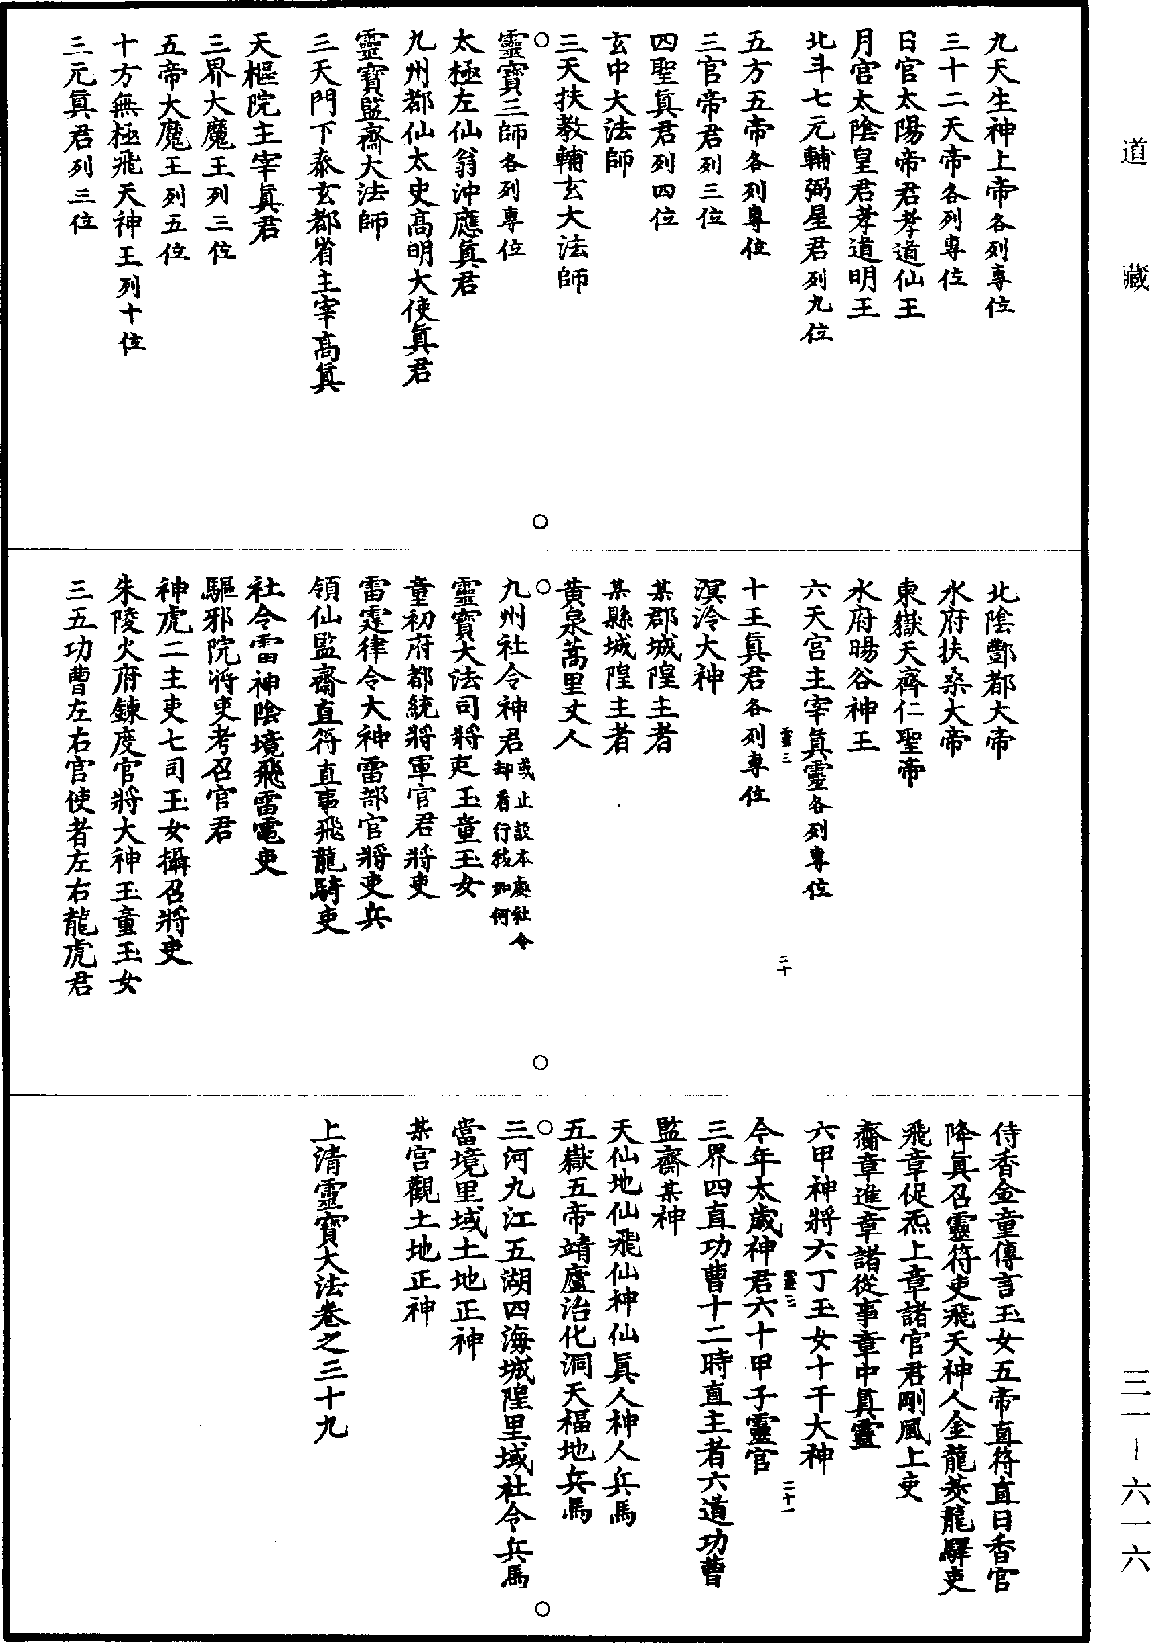 道藏
三一-六一六
九天生神上帝各列專位
三十二天帝各列專位
日宮太陽帝君孝道仙王
月宮太陰皇君孝道明王
北斗七元輔弼星君列九位
五方五帝各列專位
三官帝君列三位
四聖真君列四位
玄中大法師
三天扶教輔玄大法師
靈寶三師各列專位
太極左仙翁沖應真君
九州都仙太史高明大使真君
靈寶監齋大法師
三天門下泰玄都省主宰高真
天樞院主宰真君
三界大魔王列三位
五帝大魔王列五位
十方無極飛天神王列十位
三元真君列三位
北陰酆都大帝
水府扶桑大帝
東嶽天齊仁聖帝
水府暘谷神王
六天宮主宰真靈各列專位
靈三
三十
十王真君各列專位
溟泠大神
某郡城隍主者
某縣城隍主者
黃泉蒿里丈人
九州社令神君或止設本處社令却看行移如何
靈寶大法司將吏玉童玉女
童初府都統將軍官君將吏
雷霆律令大神雷部官將吏兵
領仙監齋直符直事飛龍騎吏
社令雷神陰境飛雷電吏
驅邪院將吏考召官君
神虎二主吏七司玉女攝召將吏
朱陵火府鍊度官將大神玉童玉女
三五功曹左右官使者左右龍虎君
侍香金童傳言玉女五帝直符直日香官
降真召靈符吏飛天神人金龍茭龍驛吏
飛章促炁上章諸官君剛風上吏
齋章進章諸從事章中真靈
六甲神將六丁玉女十干大神
靈三
三十一
今年太歲神君六十甲子靈官
三界四直功曹十二時直主者六道功曹
監齋某神
天仙地仙飛仙神仙真人神人兵馬
五嶽五帝靖廬治化洞天福地兵馬
三河九江五湖四海城隍里域社令兵馬
當境里域土地正神
某宮觀土地正神
上清靈寶大法卷之三十九